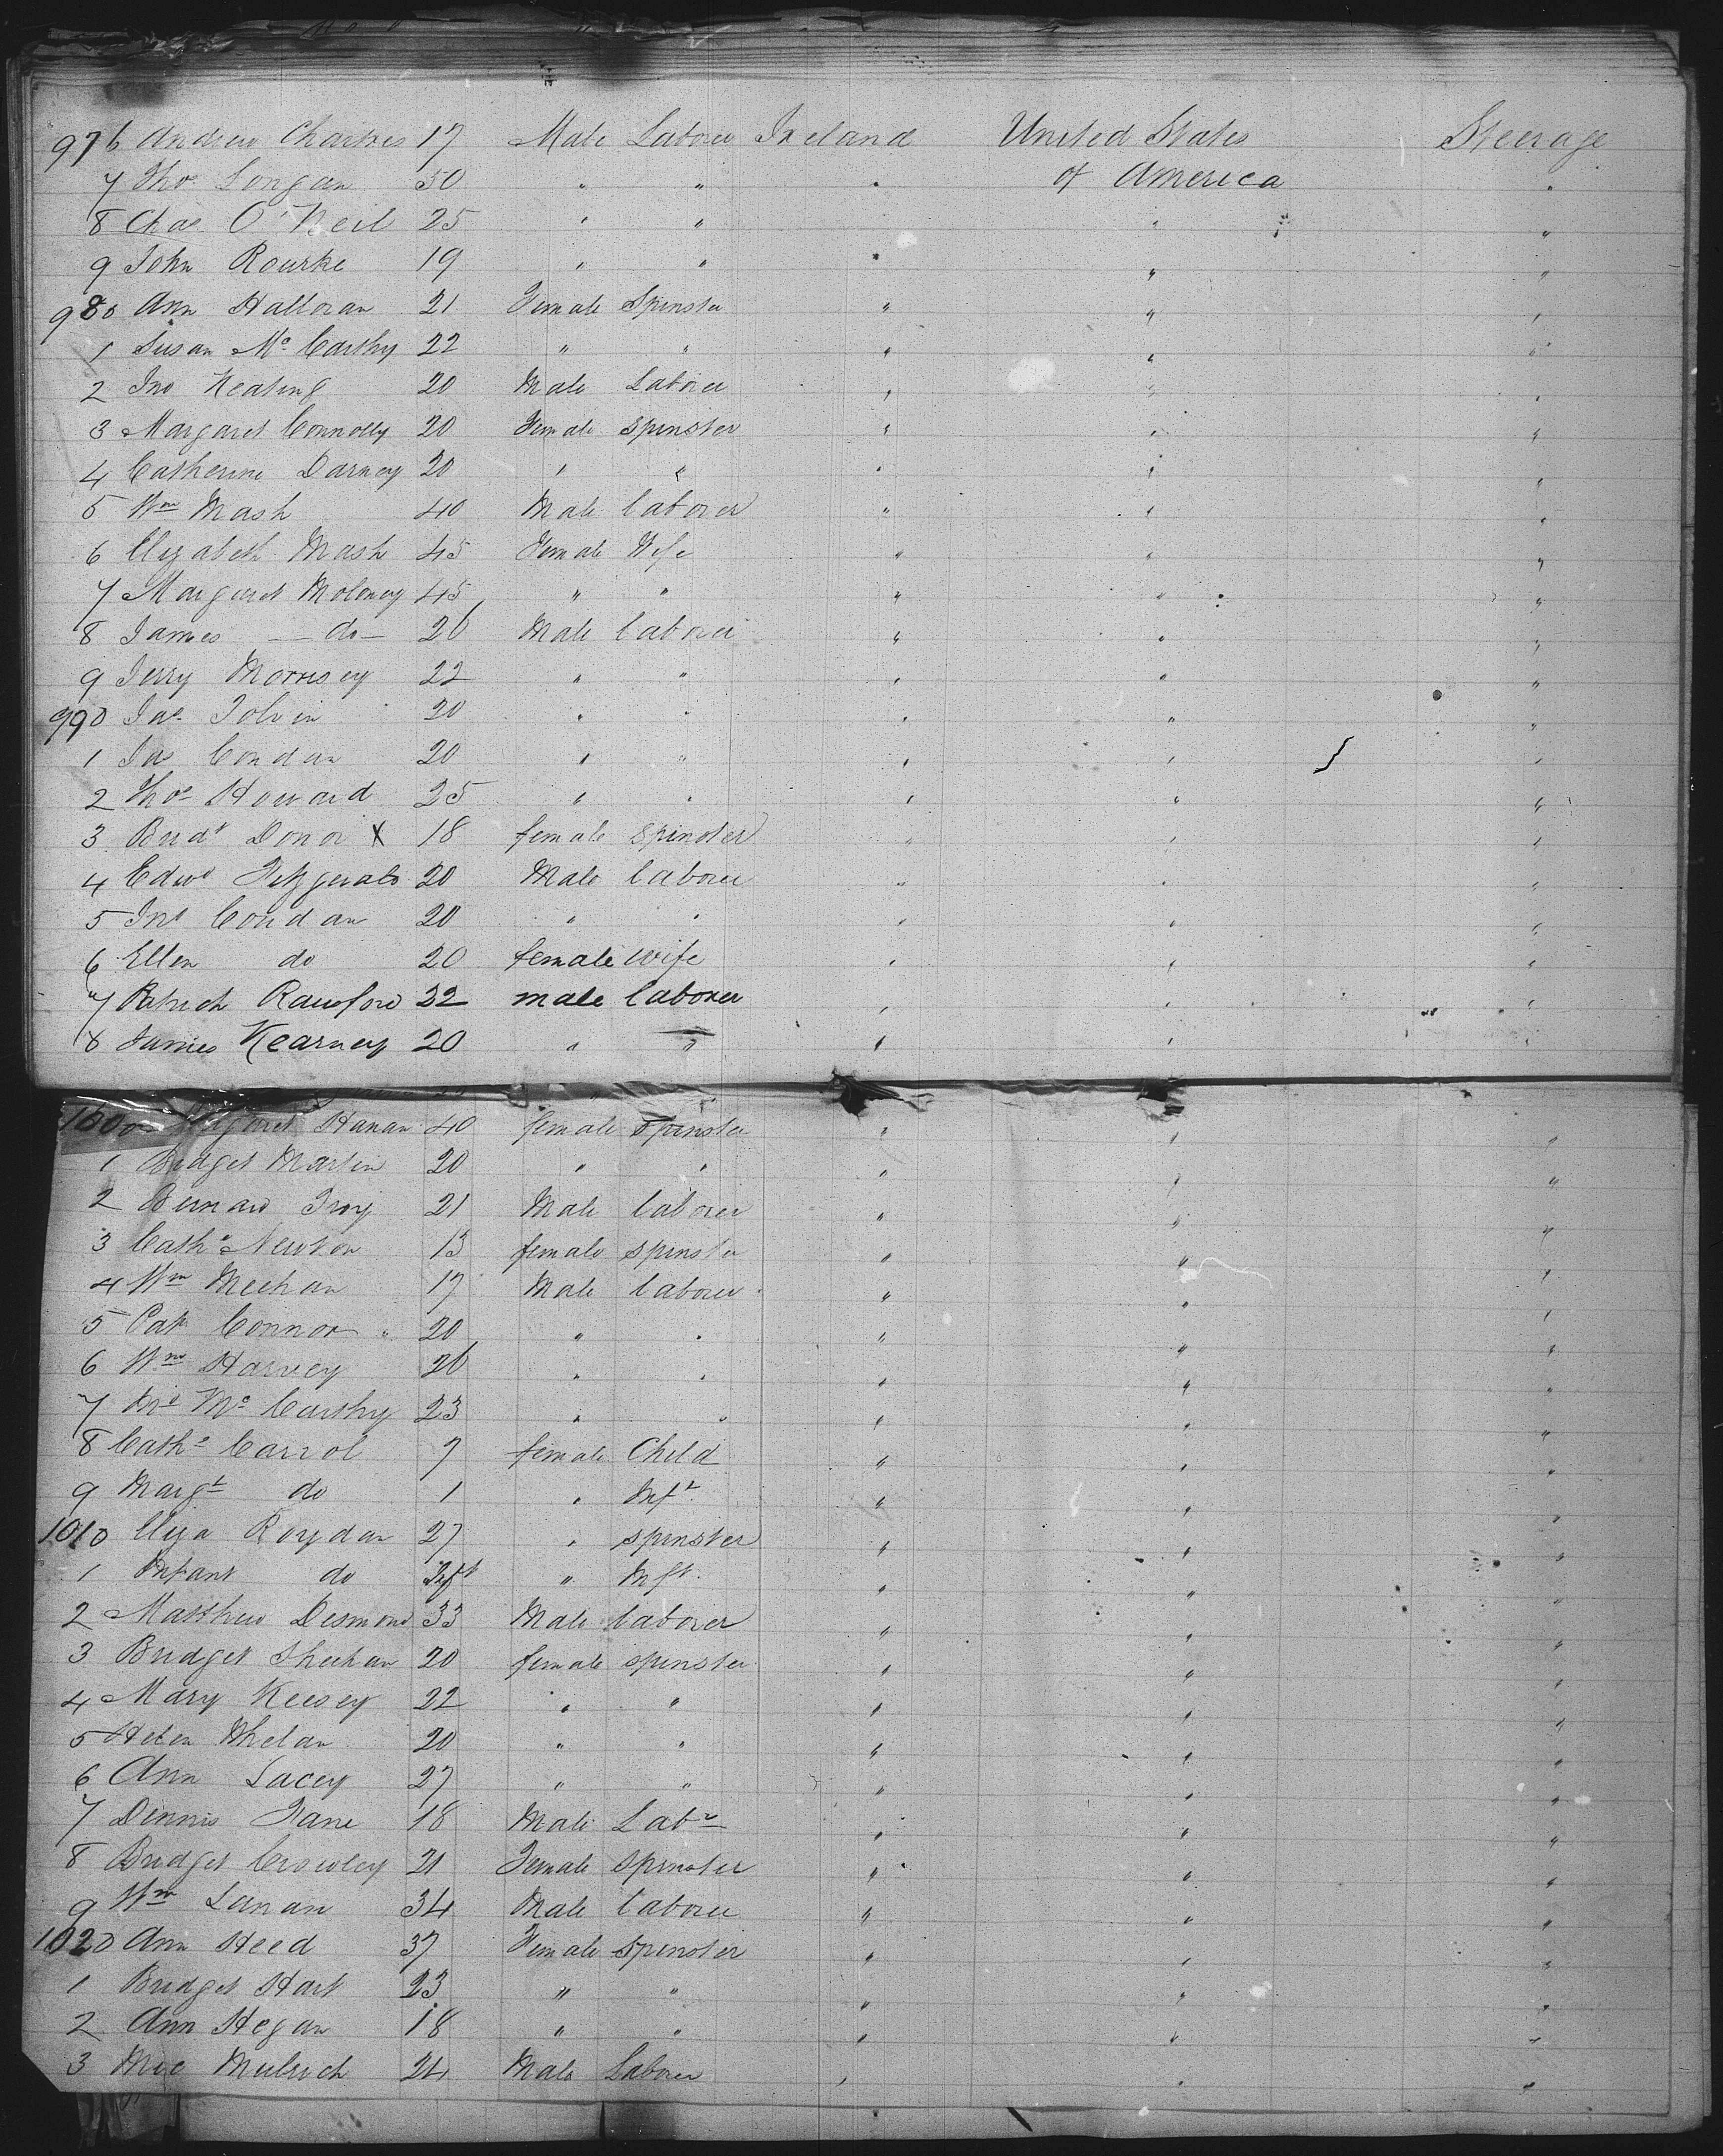 976 Andrew Chartres 17 Male Laborer Ireland United States Steerage
7 Thos Longan 30 " " " of America "
8 Chas O'Neil 25 " " " "
9 John Rourke 19 " " " " "
980 Ann Halloran 21 Female Spinster " " "
1 Susan McCarthy 22 " " " " "
2 Jno Keating 20 Male Laborer " " "
3 Margaret Connolly 20 Female Spinster " " "
4 Catherine Darney 20 " " " " "
5 Wm Mash 40 Male laborer " " "
6 Elizabeth Mash 45 Female Wife " " "
7 Margaret Moloney 45 " " " " "
8 James —do— 26 Male laborer " " "
9 Jerry Morrisey 22 " " " " "
990 Jas Tobin 20 " " " " "
1 Jas Condan 20 " " " " "
2 Thos Howard 25 " " " " "
3 Bridt Donor X 18 female spinster " " "
4 Edwd Fitzgerald 20 Male laborer " " "
5 Jno Condan 20 " " " " "
6 Ellen do 20 female wife " " "
7 Patrick 22 male laborer " " "
8 James Kearney 20 " " " " "
1000 Margaret Hanan 40 female spinster " " "
1 Bridget Martin 20 " " " " "
2 Bernard Troy 21 Male laborer " " "
3 Cathe Newton 13 female spinster " " "
4 Wm Meehan 17 Male laborer " " "
5 Pat Connor 20 " " " " "
6 Wm Harvey 26 " " " " "
7 McCarthy 23 " " " " "
8 Cathe Carrol 7 female Child " " "
9 Margt do 1 " Inft " " "
1010 Eliza Roydan 27 " spinster " " "
1 Infant do Inft " Inft " " "
2 Matthew Desmond 33 Male laborer " " "
3 Bridget Sheehan 20 female spinster " " "
4 Mary Keesey 22 " " " " "
5 Helen Whelan 20 " " " " "
6 Ann Lacey 27 " " " " "
7 Dennis Fane 18 Male Labr " " "
8 Bridget Crowley 21 Female spinster " " "
9 Wm Lanan 34 Male laborer " " "
1020 Ann Heed 37 Female spinster " " "
1 Bridget Hart 23 " " " " "
2 Ann Hegan 18 " " " " "
3 Mic Mulrich 24 Male Laborer " " "